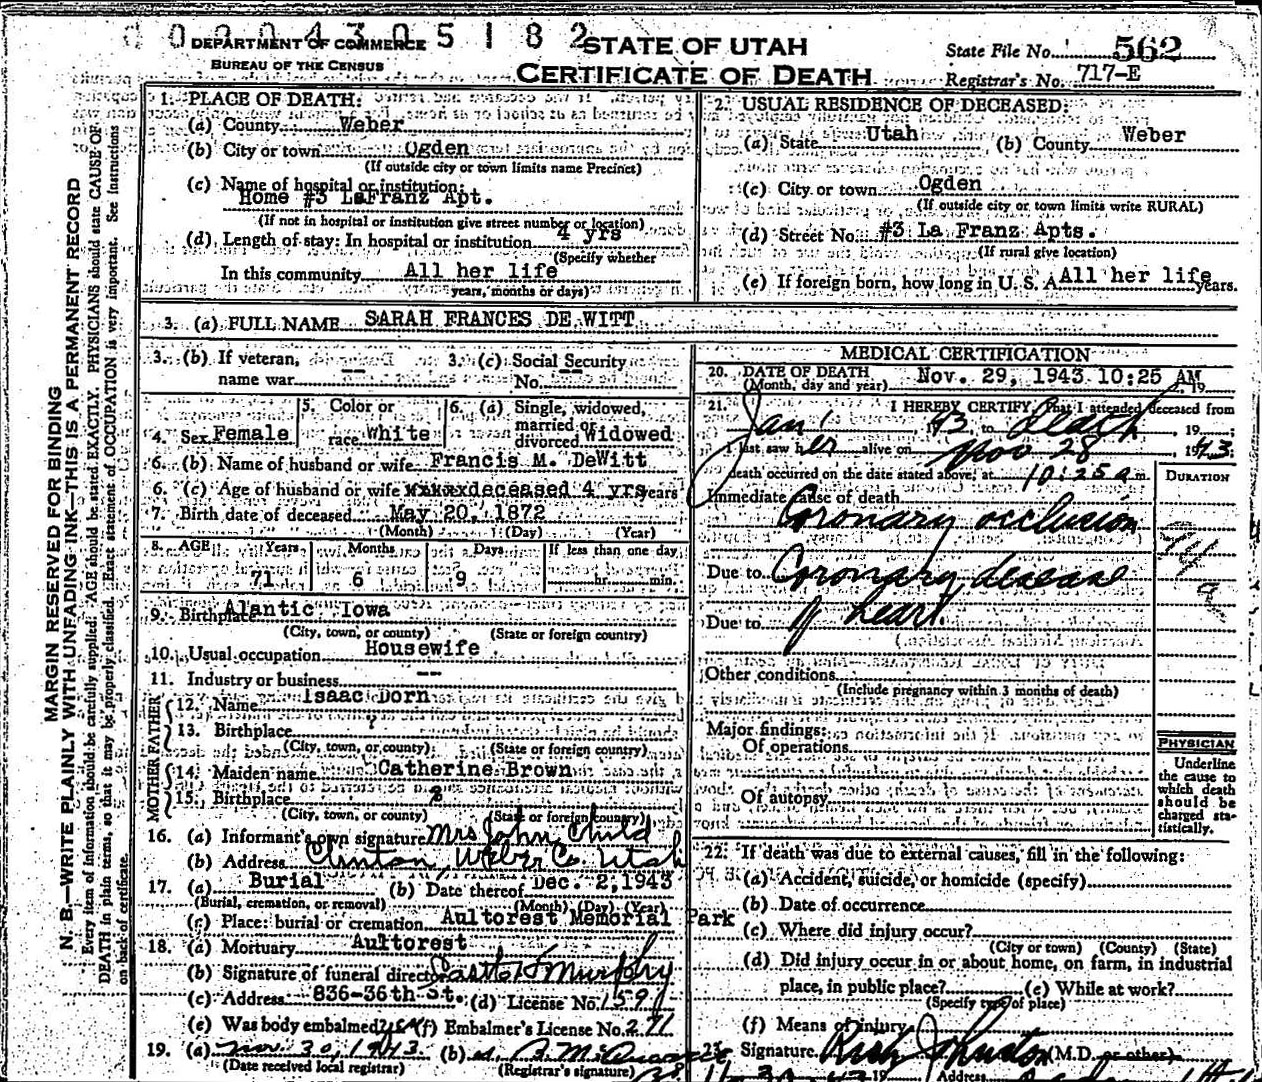 0004305182
DEPARTMENT OF COMMERCE
BUREAU OF THE CENSUS
STATE OF UTAH
CERTIFICATE OF DEATH
State File No. 562
Registrar's No. 717-E
MARGIN RESERVED FOR BINDING
N. B.—WRITE PLAINLY WITH UNFADING INK—THIS IS A PERMANENT RECORD
Every item of information should be carefully supplied. AGE should be stated EXACTLY. PHYSICIANS should state CAUSE OF
DEATH in plain terms, so that it may be properly classified. Exact statement of OCCUPATION is very important. See instructions
on back of certificate.
1. PLACE OF DEATH:
(a) County Weber
(b) City or town Ogden
(If outside city or town limits name Precinct)
(c) Name of hospital or institution:
Home #3 LaFranz Apt.
(If not in hospital or institution give street number or location)
(d) Length of stay: In hospital or institution 4 yrs
(Specify whether
In this community All her life
years, months or days)
2. USUAL RESIDENCE OF DECEASED:
(a) State Utah (b) County Weber
(c) City or town Ogden
(If outside city or town limits write RURAL)
(d) Street No. #3 La Franz Apts.
(If rural give location)
(e) If foreign born, how long in U. S. A. All her life years.
3. (a) FULL NAME SARAH FRANCES DE WITT
3. (b) If veteran, name war --
3. (c) Social Security No. --
4. Sex Female
5. Color or race White
6. (a) Single, widowed, married or divorced Widowed
6. (b) Name of husband or wife Francis M. DeWitt
6. (c) Age of husband or wife deceased 4 yrs years
7. Birth date of deceased May 20, 1872
(Month) (Day) (Year)
8. AGE Years Months Days If less than one day
71 6 9 hr. min.
9. Birthplace Alantic Iowa
(City, town, or county) (State or foreign country)
10. Usual occupation Housewife
11. Industry or business --
FATHER
12. Name Isaac Dorn
13. Birthplace ?
(City, town, or county) (State or foreign country)
MOTHER
14. Maiden name Catherine Brown
15. Birthplace ?
(City, town, or county) (State or foreign country)
16. (a) Informant's own signature Mrs John Child
(b) Address Clinton, Weber Co. Utah
17. (a) Burial (b) Date thereof Dec. 2, 1943
(Burial, cremation, or removal) (Month) (Day) (Year)
(c) Place: burial or cremation Aultorest Memorial Park
18. (a) Mortuary Aultorest
(b) Signature of funeral director Murphy
(c) Address 836-36th St. (d) License No. 159
(e) Was body embalmed yes (f) Embalmer's License No. 271
19. (a) Nov. 30, 1943 (b)
(Date received local registrar) (Registrar's signature)
MEDICAL CERTIFICATION
20. DATE OF DEATH
(Month, day and year) Nov. 29, 1943 10:25 AM 19
21. I HEREBY CERTIFY, That I attended deceased from
Jan 43 to death, 19
I last saw her alive on Nov 28, 1943;
death occurred on the date stated above, at 10:25 a m.
DURATION
Immediate cause of death
Coronary occlusion
Due to Coronary desease
Due to of heart.
94 a
Other conditions
(Include pregnancy within 3 months of death)
Major findings:
Of operations
Of autopsy
PHYSICIAN
Underline
the cause to
which death
should be
charged sta-
tistically.
22. If death was due to external causes, fill in the following:
(a) Accident, suicide, or homicide (specify)
(b) Date of occurrence
(c) Where did injury occur?
(City or town) (County) (State)
(d) Did injury occur in or about home, on farm, in industrial
place, in public place? (e) While at work?
(Specify type of place)
(f) Means of injury
23. Signature Rich Johnston (M.D. or other)
Address